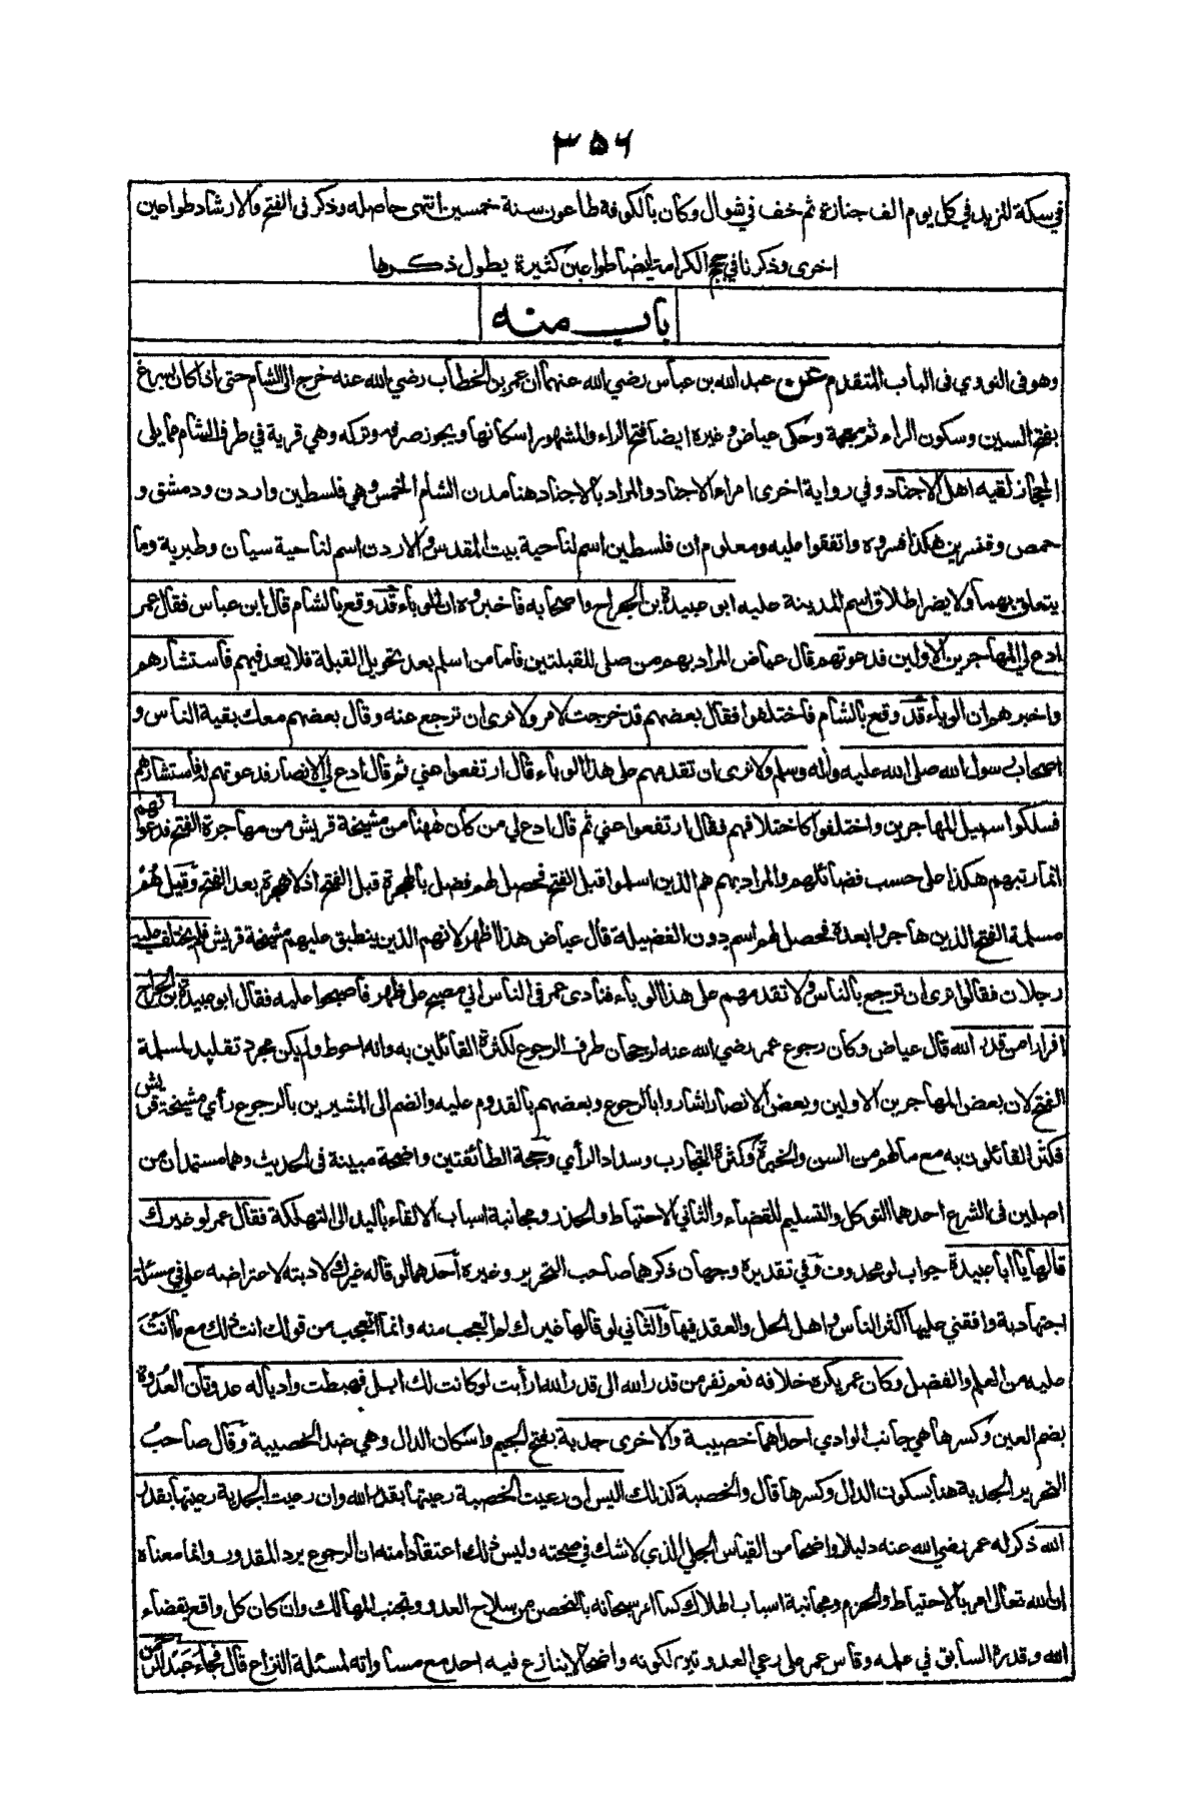 ٣٥٦
في سكة المزيد في كل يوم الف جنازة ثم خف في شوال وكان بالكوفة طاعون سنة خمسين انتهى حاصله وذكر في الفتح والارشاد طواعين
اخرى وذكرنا في حجج الكرامة ايضا طواعين كثيرة يطول ذكرها
باب منه
وهو في النووي في الباب المتقدم عن عبد الله بن عباس رضي الله عنهما ان عمر بن الخطاب رضي الله عنه خرج الى الشام حتى اذا كان بسرغ
بفتح السين وسكون الراء ثم معجمة وحكى عياض وغيره ايضا فتح الراء والمشهور اسكانها ويجوز صرفه وتركه وهي قرية في طرف الشام مما يلي
الحجاز لقيه اهل الاجناد وفي رواية اخرى امراء الاجناد والمراد بالاجناد هنا مدن الشام الخمس وهي فلسطين واردن ودمشق و
حمص وقنسرين هكذا فسروه واتفقوا عليه ومعلوم ان فلسطين اسم لناحية بيت المقدس والاردن اسم لناحية سيان وطبرية وما
يتعلق بهما ولا يضر اطلاق اسم المدينة عليه ابو عبيدة بن الجراح واصحابه فاخبروه ان الوباء قد وقع بالشام قال ابن عباس فقال عمر
ادع لي المهاجرين الاولين فدعوتهم قال عياض المراد بهم من صلى للقبلتين فاما من اسلم بعد تحويل القبلة فلا يعد فيهم فاستشارهم
واخبرهم ان الوباء قد وقع بالشام فاختلفوا فقال بعضهم قد خرجت لامر ولا نرى ان ترجع عنه وقال بعضهم معك بقية الناس و
اصحاب رسول الله صلى الله عليه وآله وسلم ولا نرى ان تقدمهم على هذا الوباء قال ارتفعوا عني ثم قال ادع لي الانصار فدعوتهم له فاستشارهم
فسلكوا سبيل المهاجرين واختلفوا كاختلافهم فقال ارتفعوا عني ثم قال ادع لي من كان ههنا من مشيخة قريش من مهاجرة الفتح فدعوتهم
انما رتبهم هكذا على حسب فضائلهم والمراد بهم هم الذين اسلموا قبل الفتح فحصل لهم فضل بالهجرة قبل الفتح اذ لا هجرة بعد الفتح وقيل هم
مسلمة الفتح الذين هاجروا بعده فحصل لهم اسم دون الفضيلة قال عياض هذا اظهر لانهم الذين ينطبق عليهم مشيخة قريش فلم يختلف عليه
رجلان فقالوا نرى ان ترجع بالناس ولا تقدمهم على هذا الوباء فنادى عمر في الناس اني مصبح على ظهر فاصبحوا عليه فقال ابو عبيدة بن الجراح
افرارا من قدر الله قال عياض وكان رجوع عمر رضي الله عنه لرجحان طرف الرجوع لكثرة القائلين به وانه احوط ولم يكن مجرد تقليد لمسلمة
الفتح لان بعض المهاجرين الاولين وبعض الانصار اشاروا بالرجوع وبعضهم بالقدوم عليه وانضم الى المشيرين بالرجوع رأي مشيخة قريش
فكثر القائلون به مع ما لهم من السن والخبرة وكثرة التجارب وسداد الرأي وحجة الطائفتين واضحة مبينة في الحديث وهما مستمدان من
اصلين في الشرع احدهما التوكل والتسليم للقضاء والثاني الاحتياط والحذر ومجانبة اسباب الالقاء باليد الى التهلكة فقال عمر لو غيرك
قالها يا ابا عبيدة جواب لو محذوف وفي تقديره وجهان ذكرهما صاحب التحرير وغيره احدهما لو قاله غيرك لادبته لاعتراضه علي في مسئلة
اجتهادية وافقني عليها اكثر الناس واهل الحل والعقد فيها والثاني لو قالها غيرك لم اتعجب منه وانما اتعجب من قولك انت ذلك مع ما انت
عليه من العلم والفضل وكان عمر يكره خلافه نعم نفر من قدر الله الى قدر الله ارأيت لو كانت لك ابل فهبطت واديا له عدوتان العدوة
بضم العين وكسرها هي جانب الوادي احداهما خصيبة والاخرى جدبة بفتح الجيم واسكان الدال وهي ضد الخصيبة وقال صاحب
التحرير الجدبة هنا بسكون الدال وكسرها قال والخصبة كذلك اليس ان رعيت الخصبة رعيتها بقدر الله وان رعيت الجدبة رعيتها بقدر
الله ذكر له عمر رضي الله عنه دليلا واضحا من القياس الجلي الذي لا شك في صحته وليس ذلك اعتقادا منه ان الرجوع يرد المقدور وانما معناه
ان الله تعالى امر بالاحتياط والحزم ومجانبة اسباب الهلاك كما امر سبحانه بالتحصن من سلاح العدو وتجنب المهالك وان كان كل واقع بقضاء
الله وقدره السابق في علمه وقاس عمر على رعي العدوتين لكونه واضحا لا ينازع فيه احد مع مساواته لمسئلة النزاع قال فجاء عبد الرحمن